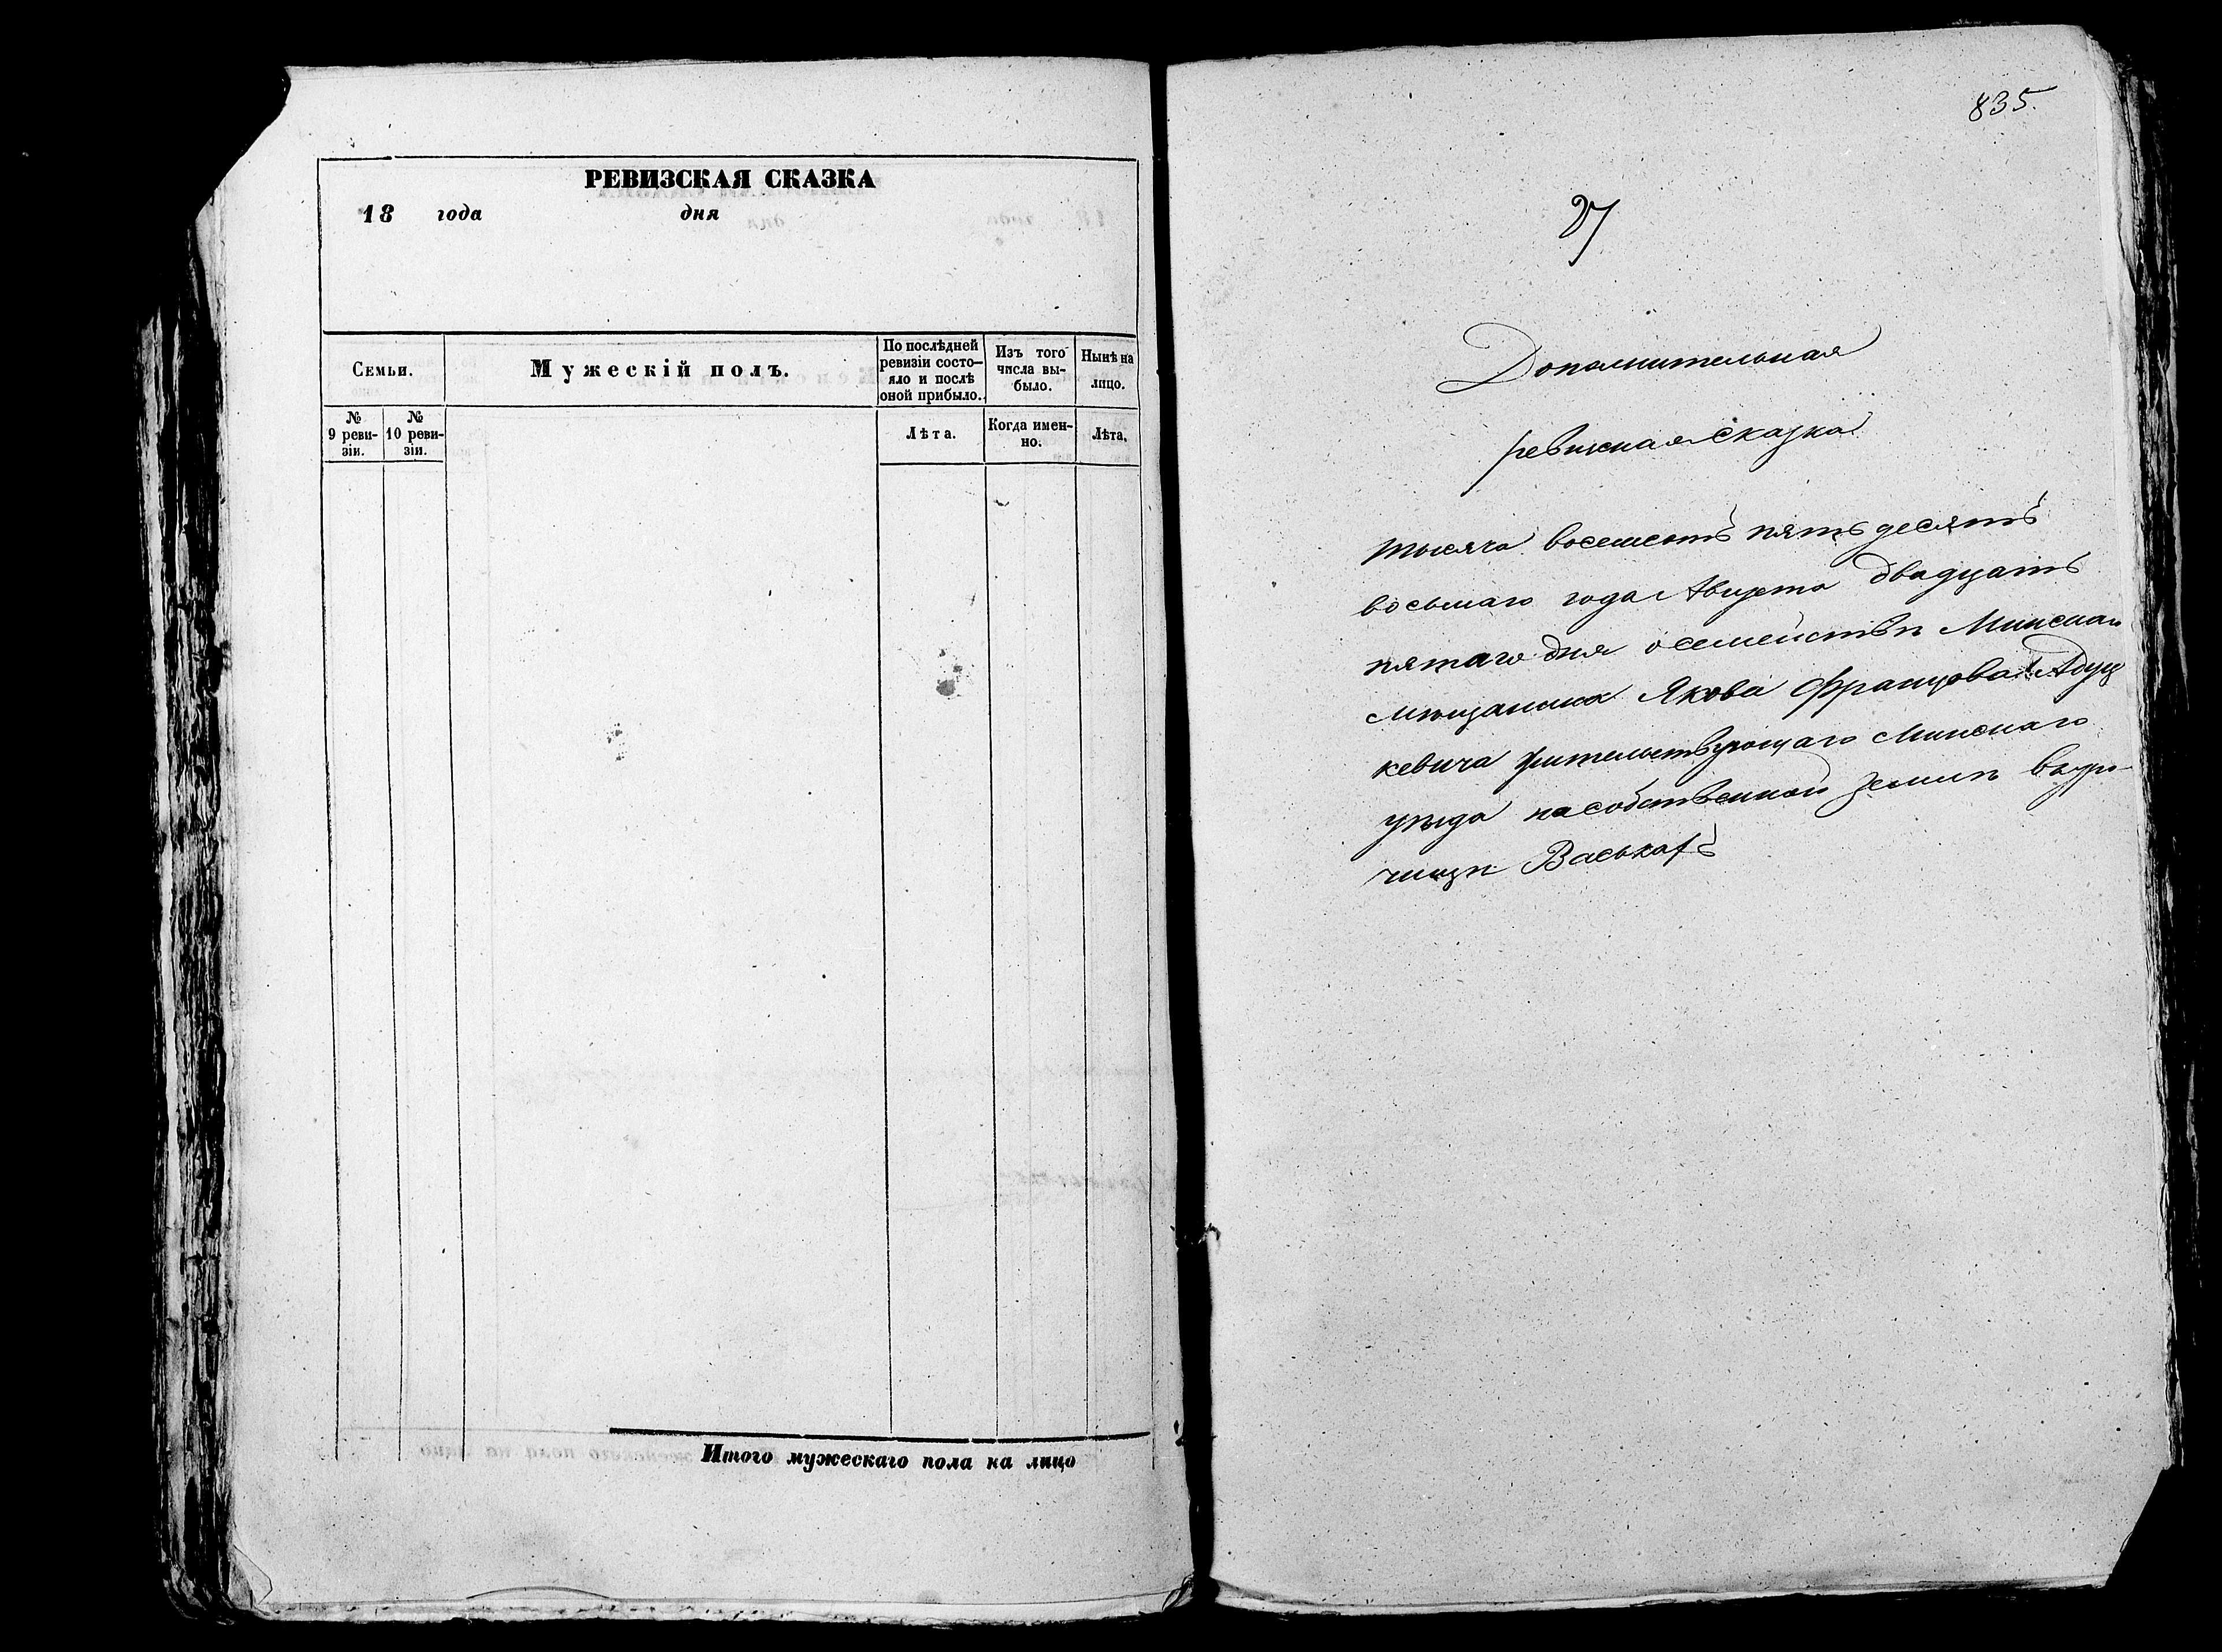 РЕВИЗСКАЯ СКАЗКА
18 года дня
Семьи.
Мужескій полъ.
По послѣдней
ревизіи состо-
яло и послѣ
оной прибыло.
Изъ того
числа вы-
было.
Нынѣ на
лицо.
№
9 реви-
зіи.
№
10 реви-
зіи.
Лѣта.
Когда имен-
но.
Лѣта.
Итого мужескаго пола на лицо
835.
Дополнительная
ревизная сказка
тысяча восемсотъ пятьдесятъ
восьмаго года Августа двадцать
пятаго дня о семействѣ Минскаго
мѣщанина Якова Францова Адуц
кевича жительствующаго Минскаго
уѣзда на собственной землѣ въ уро-
чищѣ Васьках